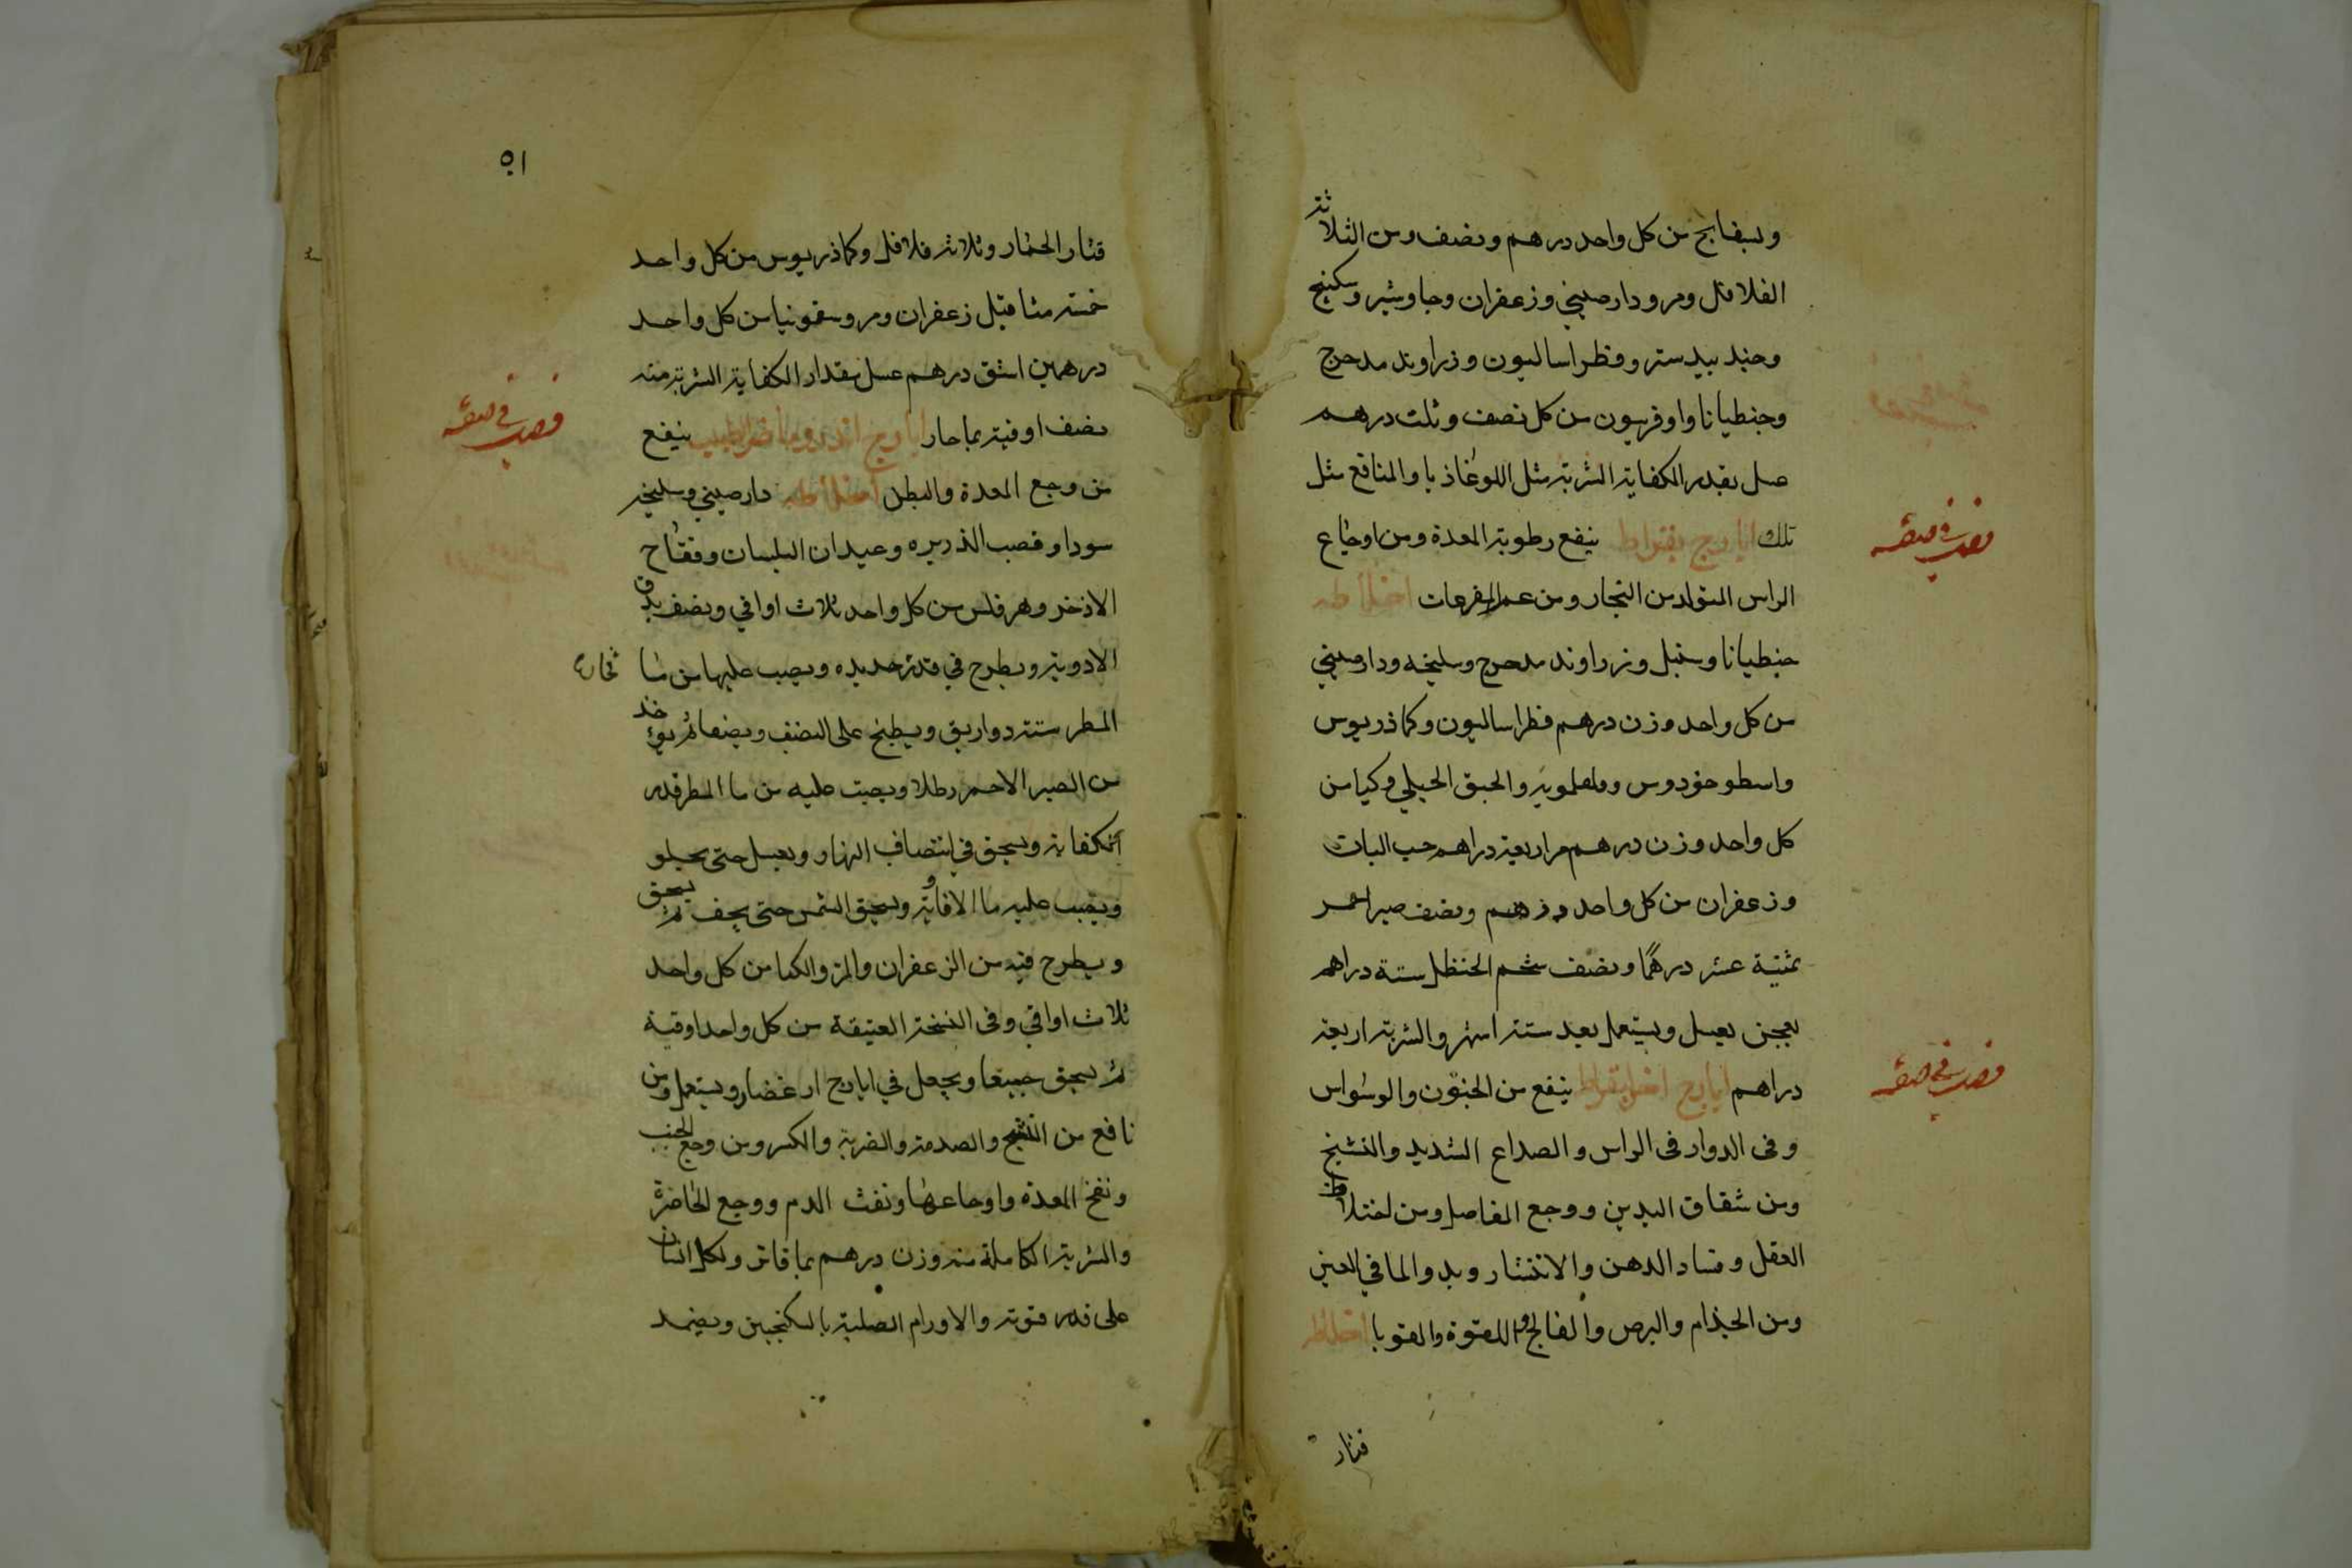 وبسفايج من كل واحد درهم ونصف ومن الثلاثة
الفلافل ومر ودارصيني وزعفران وجاوشير وسكبنج
وجند بيدستر وفطراساليون وزراوند مدحرج
وجنطيانا واوفربيون من كل نصف وثلث درهم
عسل بقدر الكفاية الشربة مثل اللوغاذيا والمنافع مثل
تلك ايارج بقراط ينفع رطوبة المعدة ومن اوجاع
الراس المتولد من البخار ومن عسر اخلاطه
جنطيانا وسنبل وزراوند مدحرج وسليخه ودارصيني
من كل واحد وزن درهم فطراساليون وكماذريوس
واسطوخودوس والحبق الجبلي وكيا من
كل واحد وزن درهم مر اربعة دراهم حب البان
وزعفران من كل واحد درهم ونصف صبر احمر
ثمنية عشر درهمًا ونصف شحم الحنظل ستة دراهم
يعجن بعسل ويستعمل بعد ستة اشهر والشربة اربعة
دراهم ايارج اخر لبقراط ينفع من الجنون والوسواس
وفى الدوار فى الراس والصداع الشديد والتشنج
ومن شقاق اليدين ووجع المفاصل ومن اختلاط
العقل وفساد الذهن والانتشار وبدو الما في العين
ومن الجذام والبرص والفالج واللقوة والقوبا اخلاطه
قثار
فصد في صفة
فصد في صفة
٥١
قثار الحمار وثلاثة فلافل وكماذريوس من كل واحد
خمسة مثاقيل زعفران ومر وسقمونيا من كل واحد
درهمين اشق درهم عسل بمقدار الكفاية الشربة منه
نصف اوقية بما حار ايارج الطبيب ينفع
من وجع المعدة والبطن اخلاطه دارصيني وسليخه
سودا وقصب الذريره وعيدان البلسان وفقاح
الاذخر من كل واحد ثلاث اواقي ونصف يدق
الادوية ويطرح في قدر جديده ويصب عليها من ما
المطر ستة دواريق ويطبخ على النصف ويصفا ثم يوخذ
من الصبر الاحمر رطلا ويصب عليه من ما المطر قدر
الكفاية ويسحق في انتصاف النهار ويغسل حتى
ويصب عليه ما الافاوية ويسحق الشمس حتى يجف ثم يسحق
ويطرح فيه من الزعفران والمر والكيا من كل واحد
ثلاث اواقي وفى النسخة العتيقة من كل واحد اوقية
ثم يسحق جميعا ويجعل في ايارج ويستعمل ومن
نافع من والصدمة والضربة والكسر ومن وجع الجنب
ونفخ المعدة واوجاعها ونفث الدم ووجع الخاصرة
والشربة الكاملة منه وزن درهم بما فاتر ولكل انسان
على قدر قوته والاورام الصلبة بالسكنجبين ويضمد
فصد في صفة